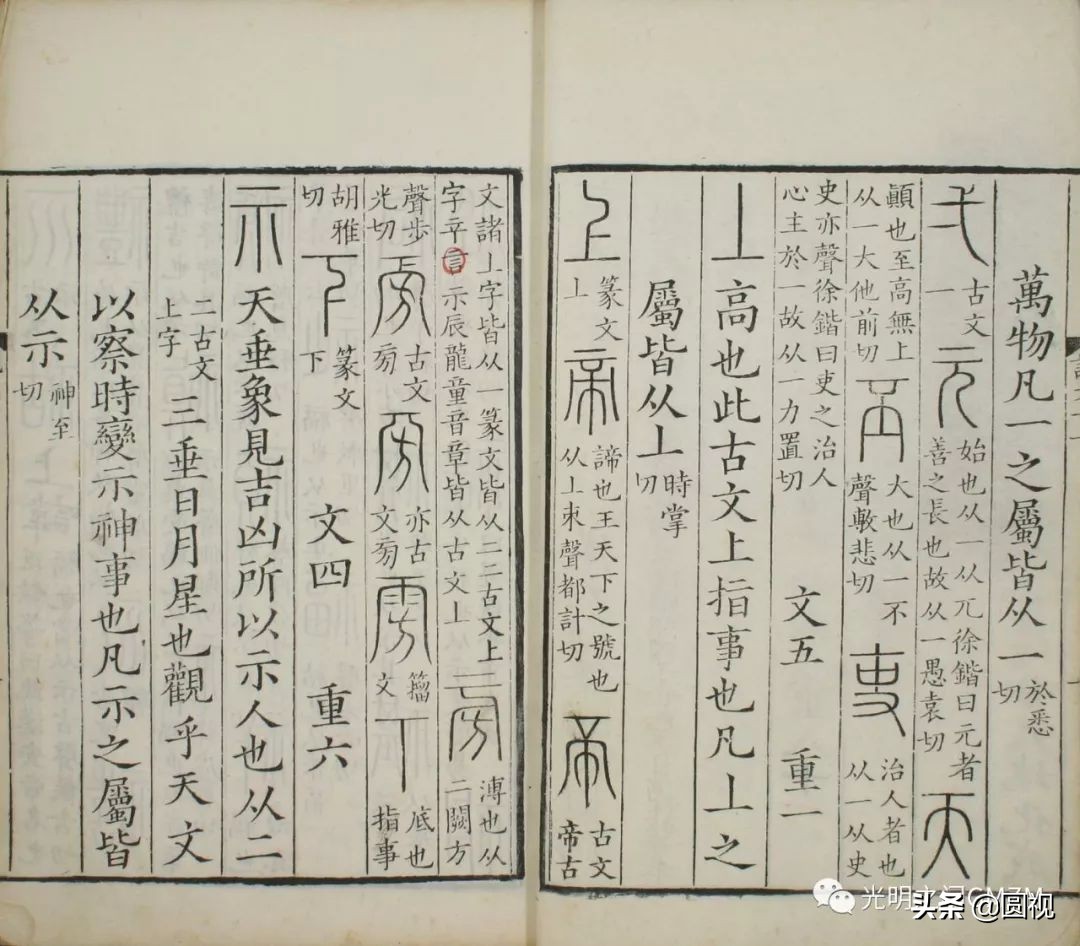 萬物凡一之屬皆从一 於悉切
弌 古文一 元 始也从一从兀徐鍇曰元者善之長也故从一愚袁切 天
顚也至高無上从一大他前切 丕 大也从一不聲敷悲切 吏 治人者也从一从史
史亦聲徐鍇曰吏之治人心主於一故从一力置切 文五 重一
丄高也此古文上指事也凡丄之
屬皆从丄 時掌切
上 篆文丄 帝 諦也王天下之號也从丄朿聲都計切 帝 古文帝古
文諸丄字皆从一篆文皆从二二古文上字䇂言示辰龍童音章皆从古文上 旁 溥也从二闕方
聲步光切 㫄 古文㫄 㫄 亦古文㫄 雱 籒文 丅 底也指事
胡雅切 下 篆文下 文四 重六
示 天垂象見吉凶所以示人也从二
二古文上字 三垂日月星也觀乎天文
以察時變示神事也凡示之屬皆
从示 神至切
头条 @圆视